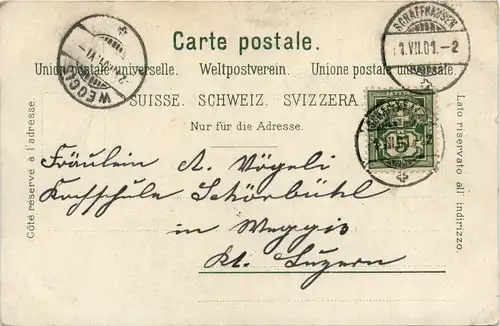 Carte postale.
Union postale universelle. Weltpostverein. Unione postale universale.
SUISSE. SCHWEIZ. SVIZZERA.
Nur für die Adresse.
Côté réservé à l'adresse.
Lato riservato all indirizzo.
WEGGIS
SCHAFFHAUSEN
1.VII.01.-2
5
Fräulein A. Vögeli
Kochschule Schörbühl
in Weggis
Kt. Luzern